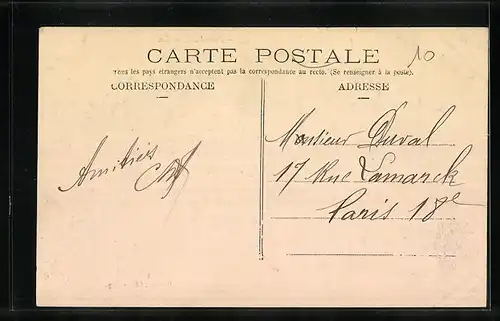 CARTE POSTALE
10
Tous les pays étrangers n'acceptent pas la correspondance au recto. (Se renseigner à la poste).
CORRESPONDANCE
ADRESSE
Amitiés
Monsieur Duval
17 Rue Lamarck
Paris 18e